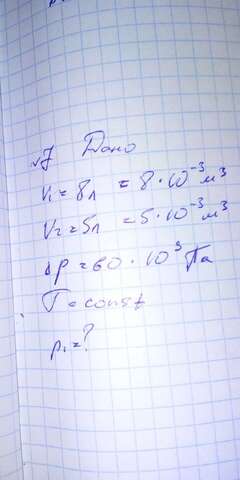 №7 Дано
V₁ = 8л = 8·10⁻³ м³
V₂ = 5л = 5·10⁻³ м³
Δp = 60·10³ Па
T = const
p₁ = ?